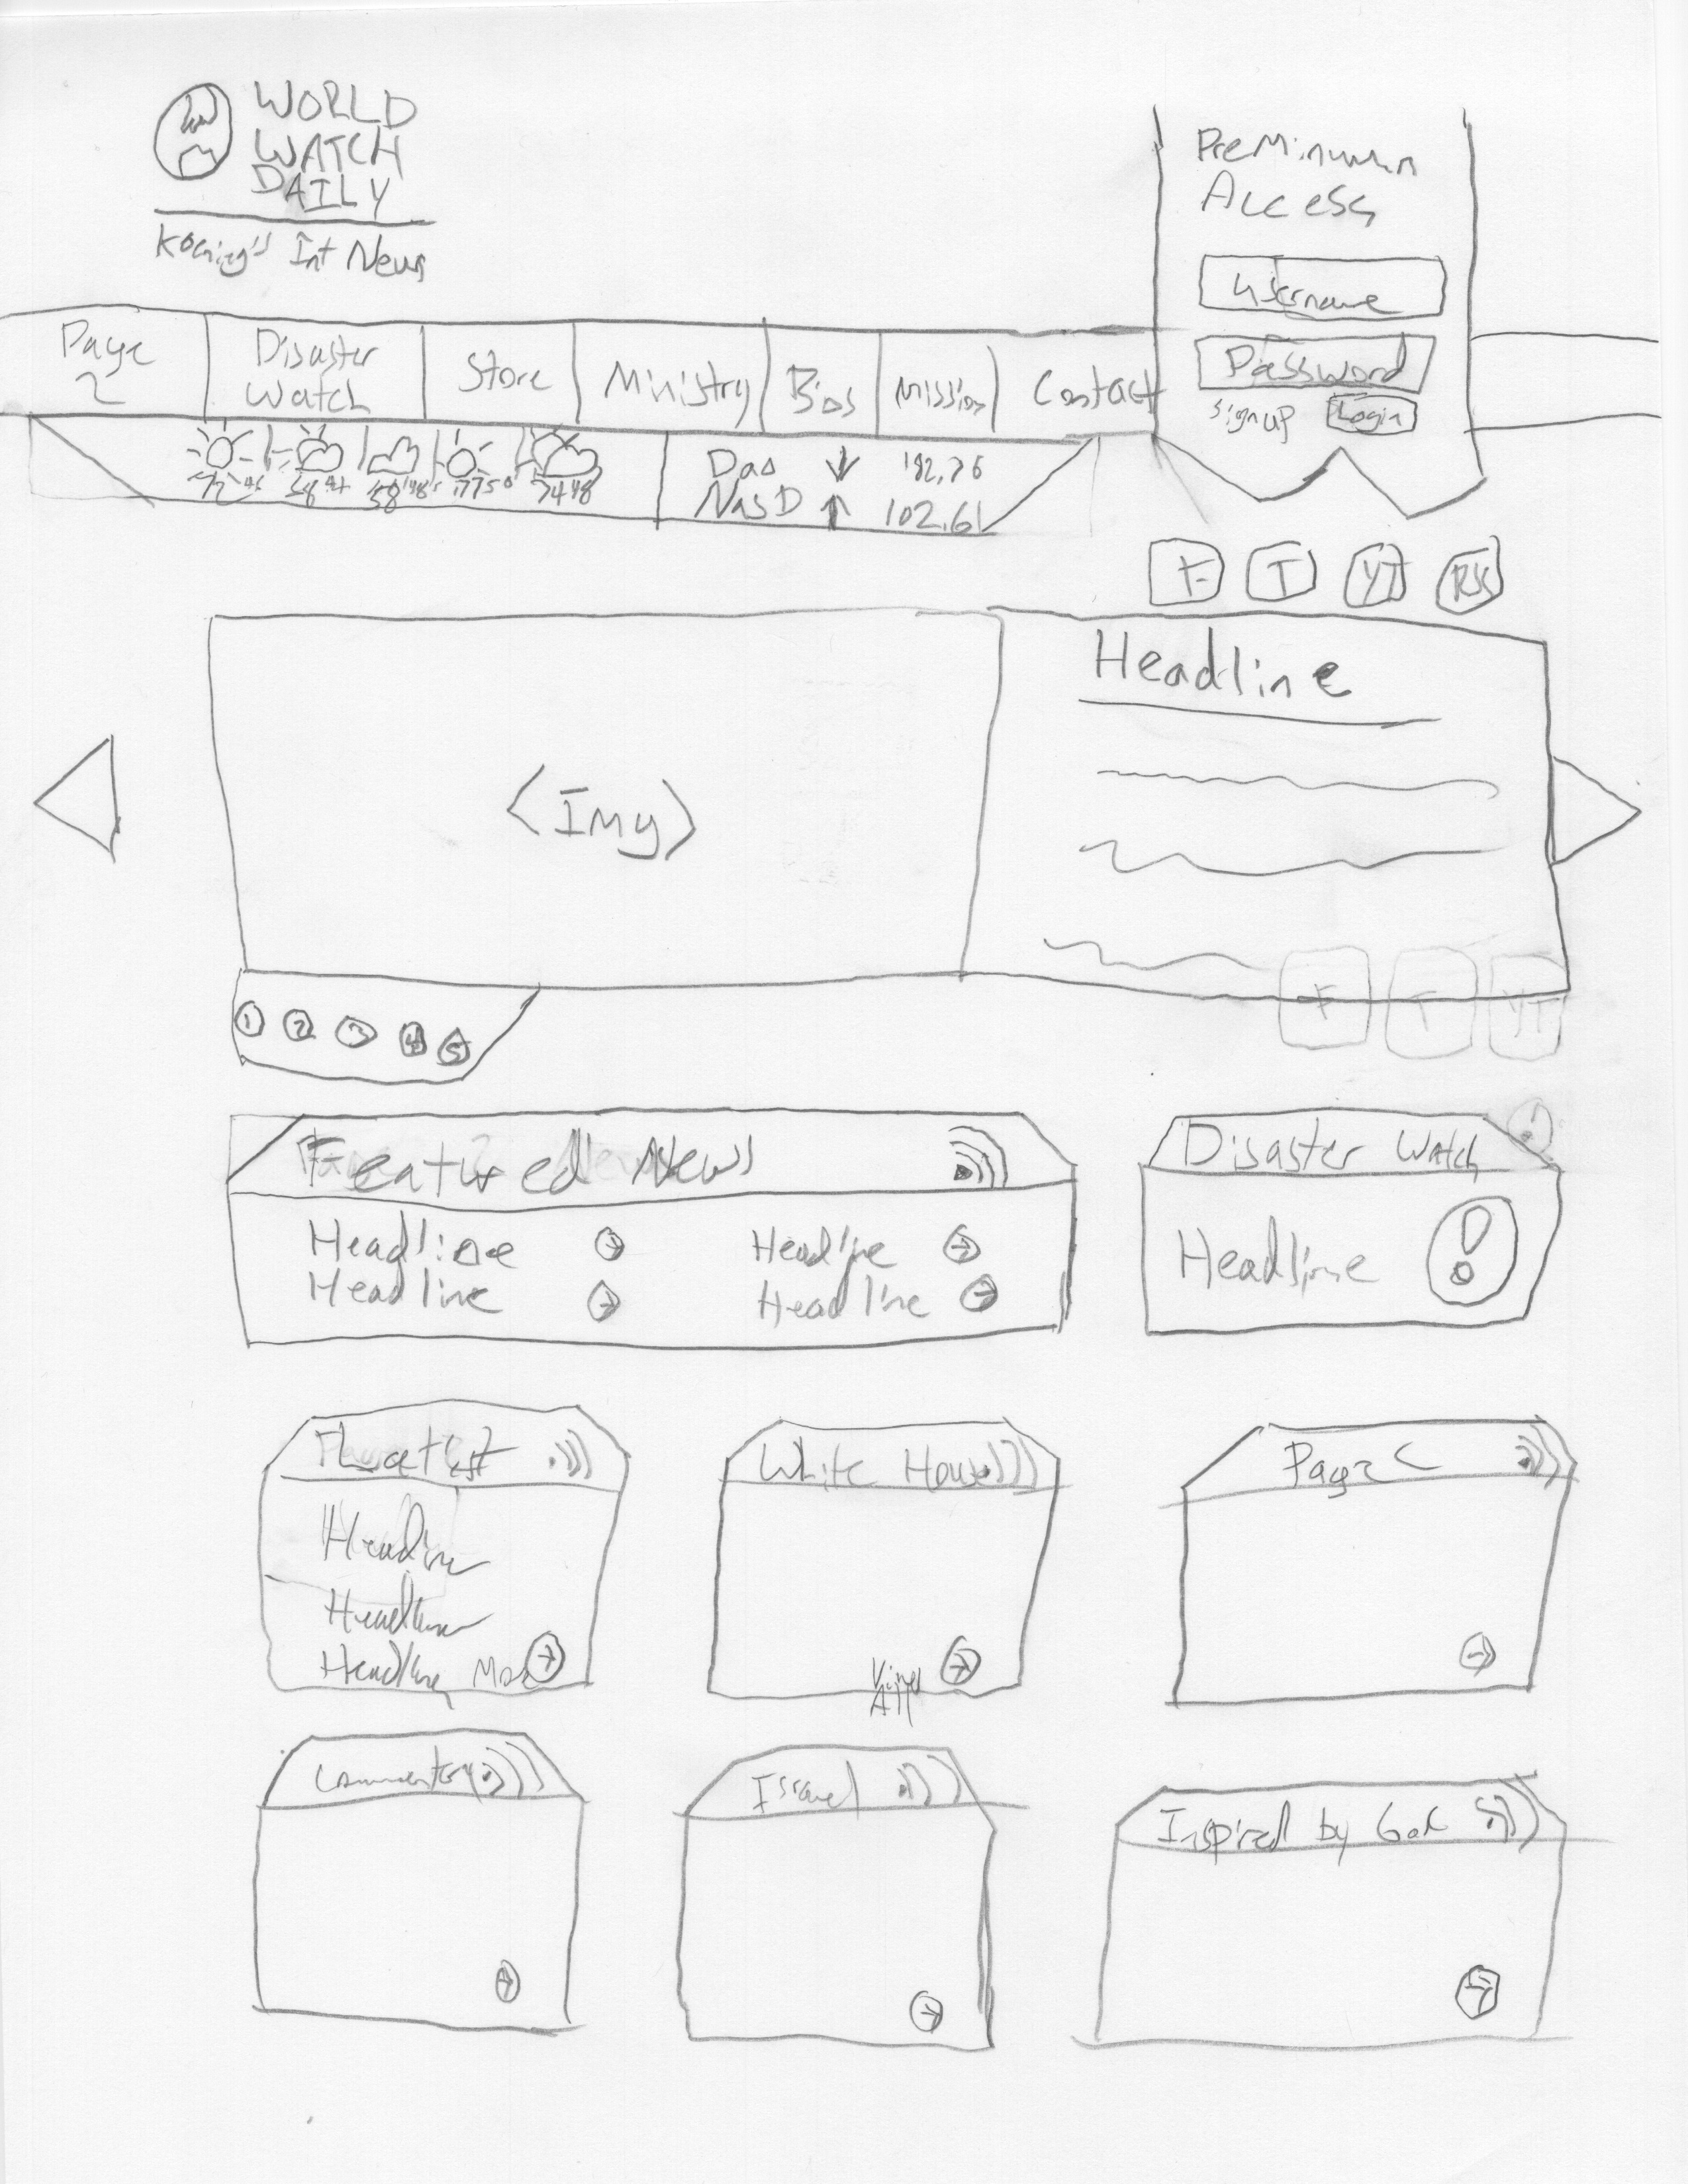 WORLD
WATCH
DAILY
Koenig's Int News
PreMinumun
Access
Username
Password
Sign up Login
Page
2
Disaster
Watch
Store
Ministry
Bios
Mission
Contact
72 46 58 47 58 48 77 50 74 48
Dao 182.76
NasD 102.61
F T YT RSS
Headline
<Img>
F T YT
1 2 3 4 5
Featured News
Headline Headline
Headline Headline
Disaster Watch
Headline !
White House
Page 2
Headline
Headline
Headline More
View
All
Commentary
Israel
Inspired by God